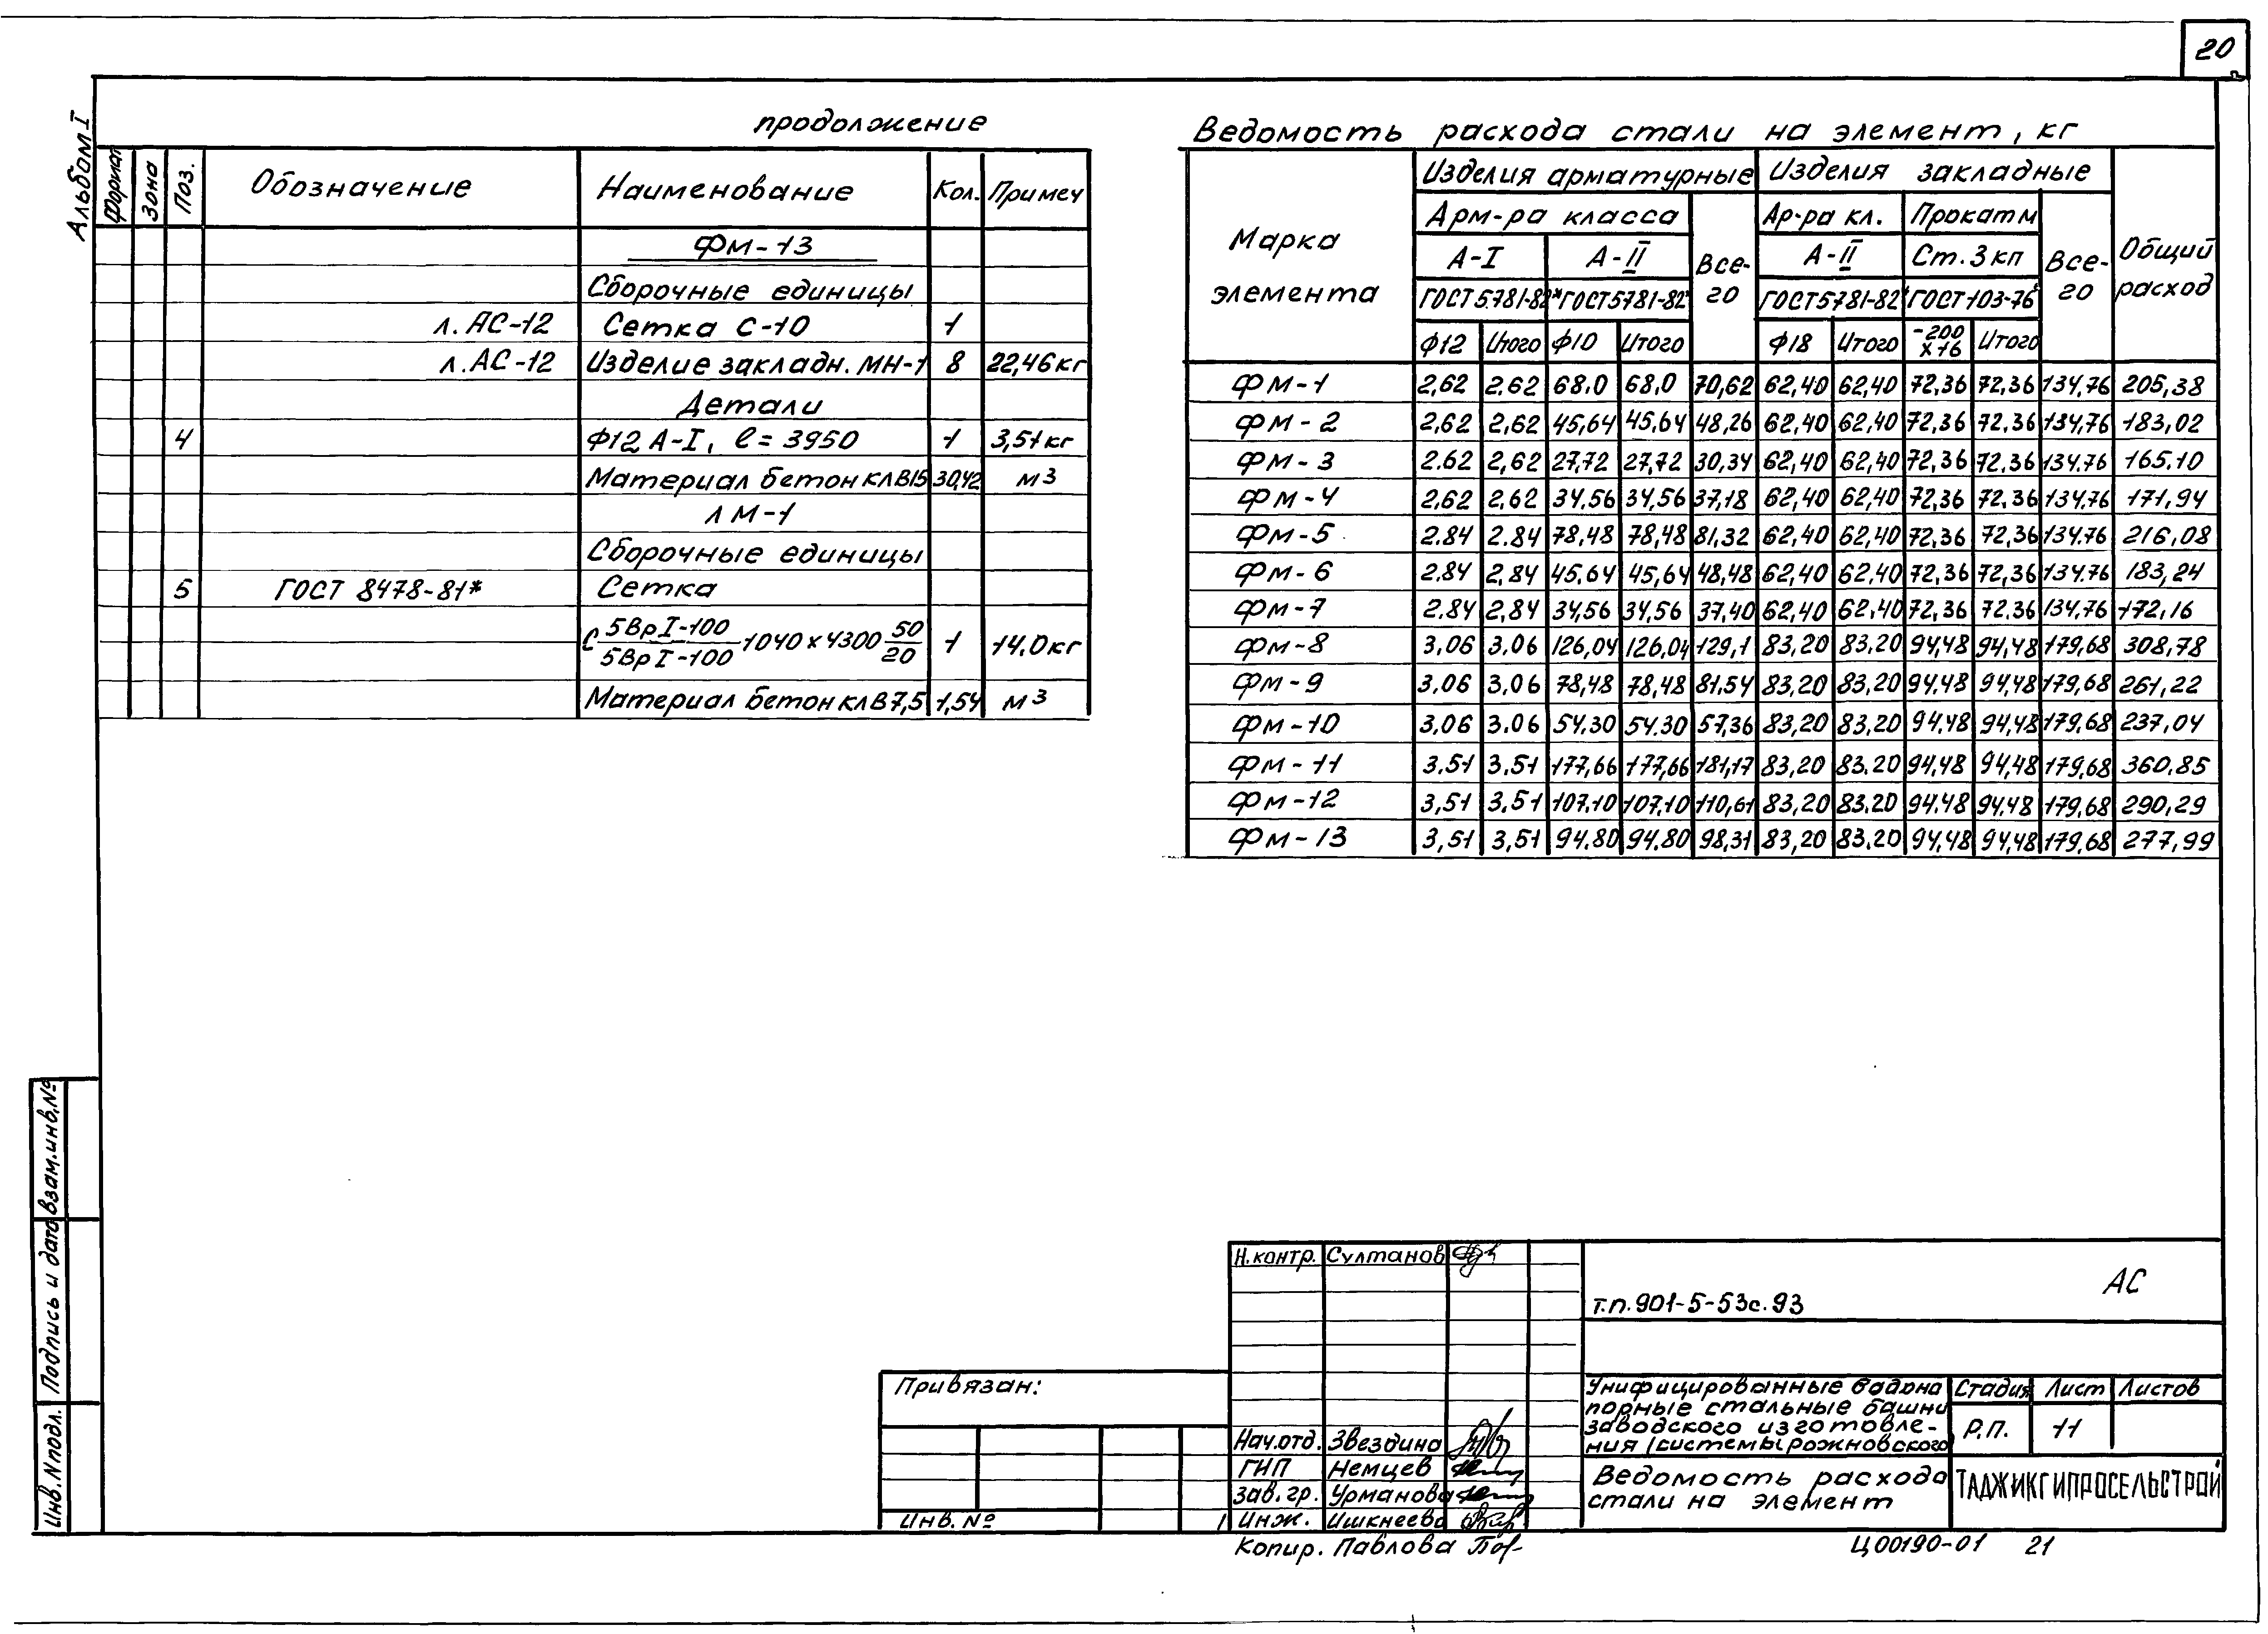 20
Альбом I
продолжение
Формат Зона Поз. Обозначение Наименование Кол. Примеч
Фм-13
Сборочные единицы
л. АС-12 Сетка С-10 1
л. АС-12 Изделие закладн. МН-1 8 22,46кг
Детали
4 Ф12 А-I, ℓ=3950 1 3,51кг
Материал бетон кл В15 30,42 м3
ЛМ-1
Сборочные единицы
5 ГОСТ 8478-81* Сетка
С 5ВрI-100/5ВрI-100 1040х4300 50/20 1 14.0кг
Материал бетон кл В7,5 1,54 м3
Ведомость расхода стали на элемент, кг
Марка элемента
Изделия арматурные Изделия закладные Общий расход
Арм-ра класса Все-го Ар-ра кл. Прокат м Все-го
А-I А-II А-II Ст.3кп
ГОСТ5781-82* ГОСТ5781-82* ГОСТ5781-82* ГОСТ103-76*
Ф12 Итого Ф10 Итого Ф18 Итого -200х16 Итого
Фм-1 2,62 2.62 68.0 68,0 70,62 62,40 62,40 72,36 72,36 134,76 205,38
Фм-2 2,62 2,62 45,64 45,64 48,26 62,40 62,40 72,36 72.36 134,76 183,02
Фм-3 2.62 2,62 27,72 27,72 30,34 62,40 62,40 72,36 72.36 134.76 165.10
Фм-4 2,62 2.62 34,56 34,56 37,18 62,40 62,40 72,36 72,36 134.76 171,94
Фм-5 2.84 2.84 78,48 78,48 81,32 62,40 62,40 72,36 72,36 134.76 216,08
Фм-6 2,84 2,84 45.64 45,64 48,48 62,40 62,40 72,36 72,36 134.76 183,24
Фм-7 2.84 2,84 34,56 34,56 37,40 62,40 62,40 72,36 72.36 134,76 172,16
Фм-8 3,06 3,06 126,04 126,04 129,1 83,20 83,20 94,48 94,48 179,68 308,78
Фм-9 3,06 3,06 78,48 78,48 81,54 83,20 83,20 94,48 94,48 179,68 261,22
Фм-10 3,06 3.06 54.30 54.30 57,36 83,20 83,20 94,48 94,48 179,68 237,04
Фм-11 3.51 3.51 177,66 177,66 181,17 83,20 83.20 94,48 94,48 179,68 360.85
Фм-12 3,51 3,51 107.10 107,10 110,61 83,20 83.20 94.48 94,48 179,68 290,29
Фм-13 3,51 3,51 94.80 94.80 98,31 83,20 83.20 94,48 94,48 179,68 277,99
Взам.инв.№
Подпись и дата
Инв.N подл.
Привязан:
Инв.№
Н.контр. Султанов
Нач.отд. Звездина
ГИП Немцев
Зав.гр. Урманова
1 Инж. Ишкнеева
Копир. Павлова
т.п.901-5-53с.93 АС
Унифицированные водона
порные стальные башни
заводского изготовле-
ния (системы рожновского)
Стадия Лист Листов
Р.П. 11
Ведомость расхода
стали на элемент
ТАДЖИКГИПРОСЕЛЬСТРОЙ
Ц00190-01 21